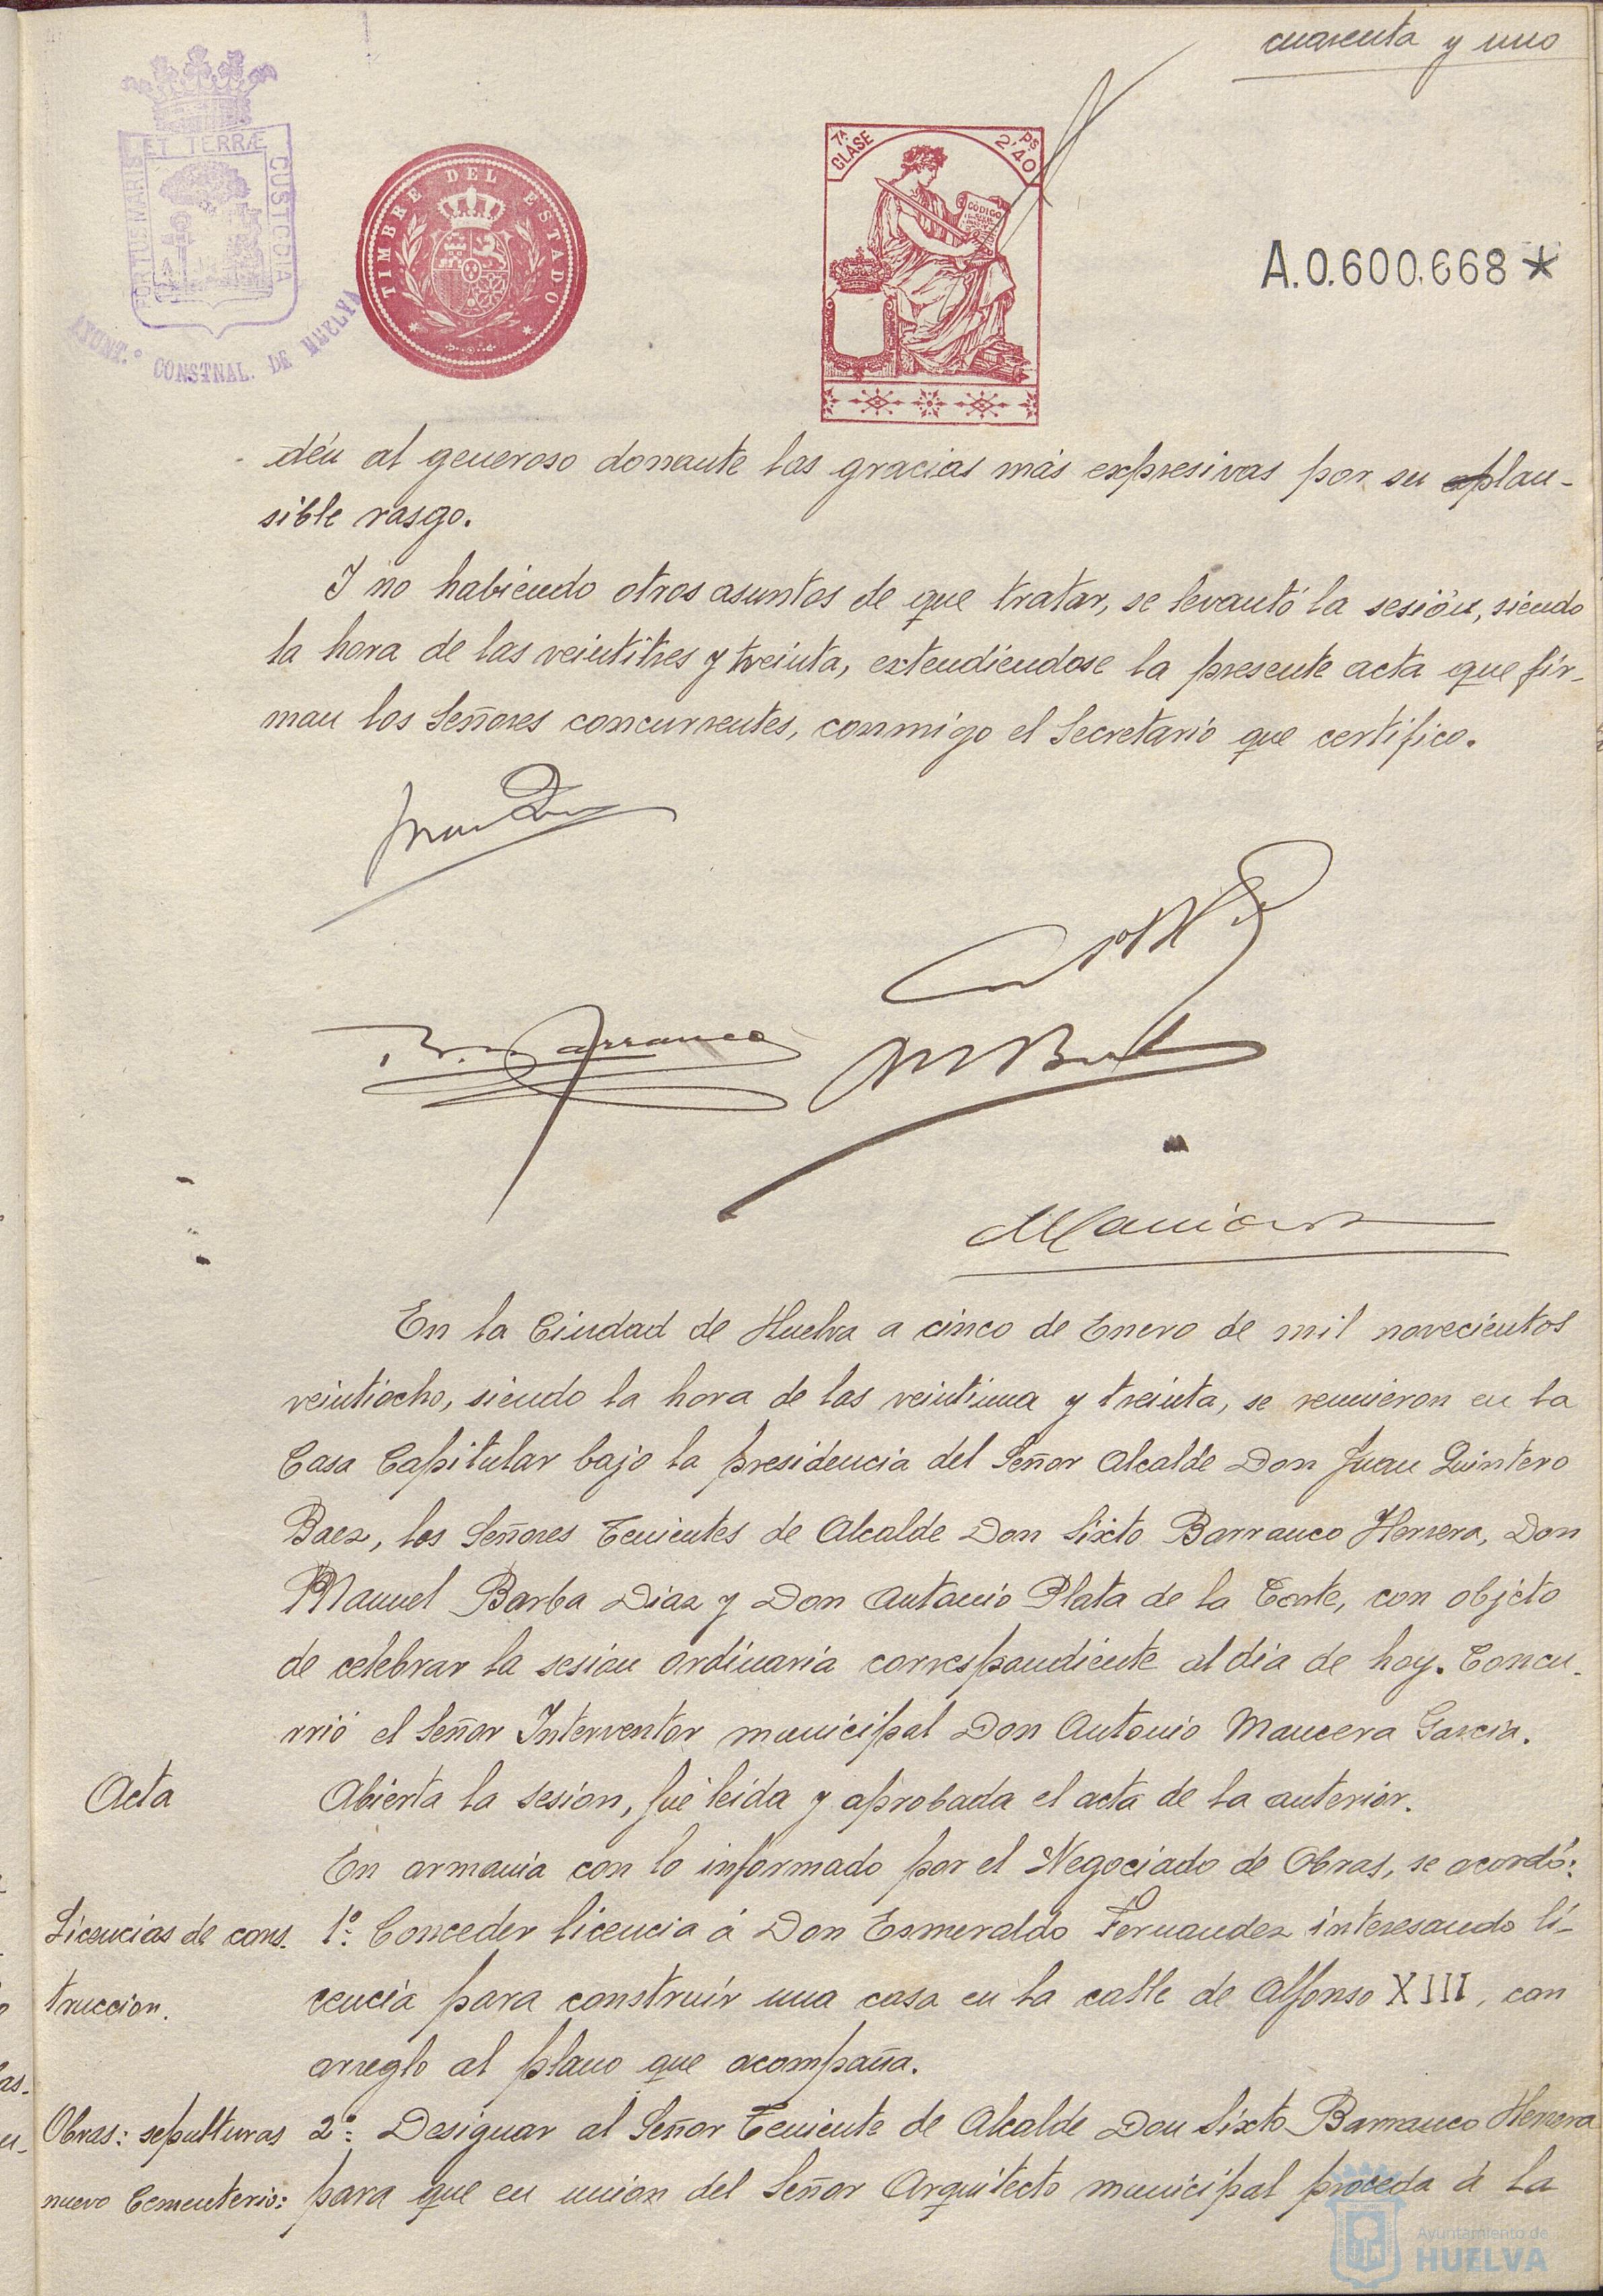 cuarenta y uno
PORTUS MARIS ET TERRÆ CUSTODIA
AYUNT.º CONSTNAL. DE HUELVA
TIMBRE DEL ESTADO
7ª CLASE
2'40 PS
CODIGO
A.0.600.668*
dén al generoso donante las gracias más expresivas por su plau-
sible rasgo.
Y no habiendo otros asuntos de que tratar, se levantó la sesión, siendo
la hora de las veintitres y treinta, extendiendose la presente acta que fir-
man los Señores concurrentes, conmigo el Secretario que certifico.
Barranco
En la Ciudad de Huelva a cinco de Enero de mil novecientos
veintiocho, siendo la hora de las veintiuna y treinta, se reunieron en la
Casa Capitular bajo la presidencia del Señor Alcalde Don Juan Quintero
Baez, los Señores Tenientes de Alcalde Don Sixto Barranco Herrera, Don
Manuel Barba Diaz y Don Antonio Plata de la Corte, con objeto
de celebrar la sesion ordinaria correspondiente al dia de hoy. Concu-
rrió el Señor Interventor municipal Don Antonio Mancera Garcia.
Acta
Abierta la sesion, fué leida y aprobada el acta de la anterior.
En armonia con lo informado por el Negociado de Obras, se acordó:
Licencias de cons-
1º: Conceder licencia á Don Esmeraldo Fernandez interesando li-
truccion.
cencia para construir una casa en la calle de Alfonso XIII, con
arreglo al plano que acompaña.
Obras: sepulturas
2º: Designar al Señor Teniente de Alcalde Don Sixto Barranco Herrera
nuevo Cementerio:
para que en union del Señor Arquitecto municipal proceda á la
Ayuntamiento de
HUELVA